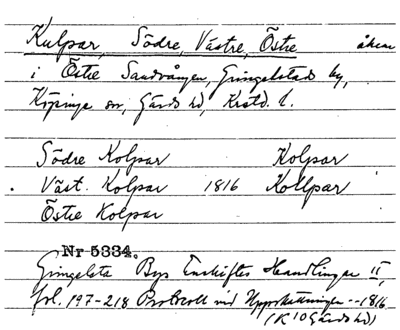 Kulpar, Södre, Västre, Östre åkrar
i Östre Sandvången, Gringelstads by,
Köpinge sn, Gärds hd, Krstd. l.
Södre Kolpar Kolpar
Väst. Kolpar 1816 Kollpar
Östre Kolpar
Nr 5334.
Gringelsta Bys Enskiftes Handlingar II,
fol. 197-218 Protocoll vid Uppskattningen -- 1816
(K 10 Gärds hd)